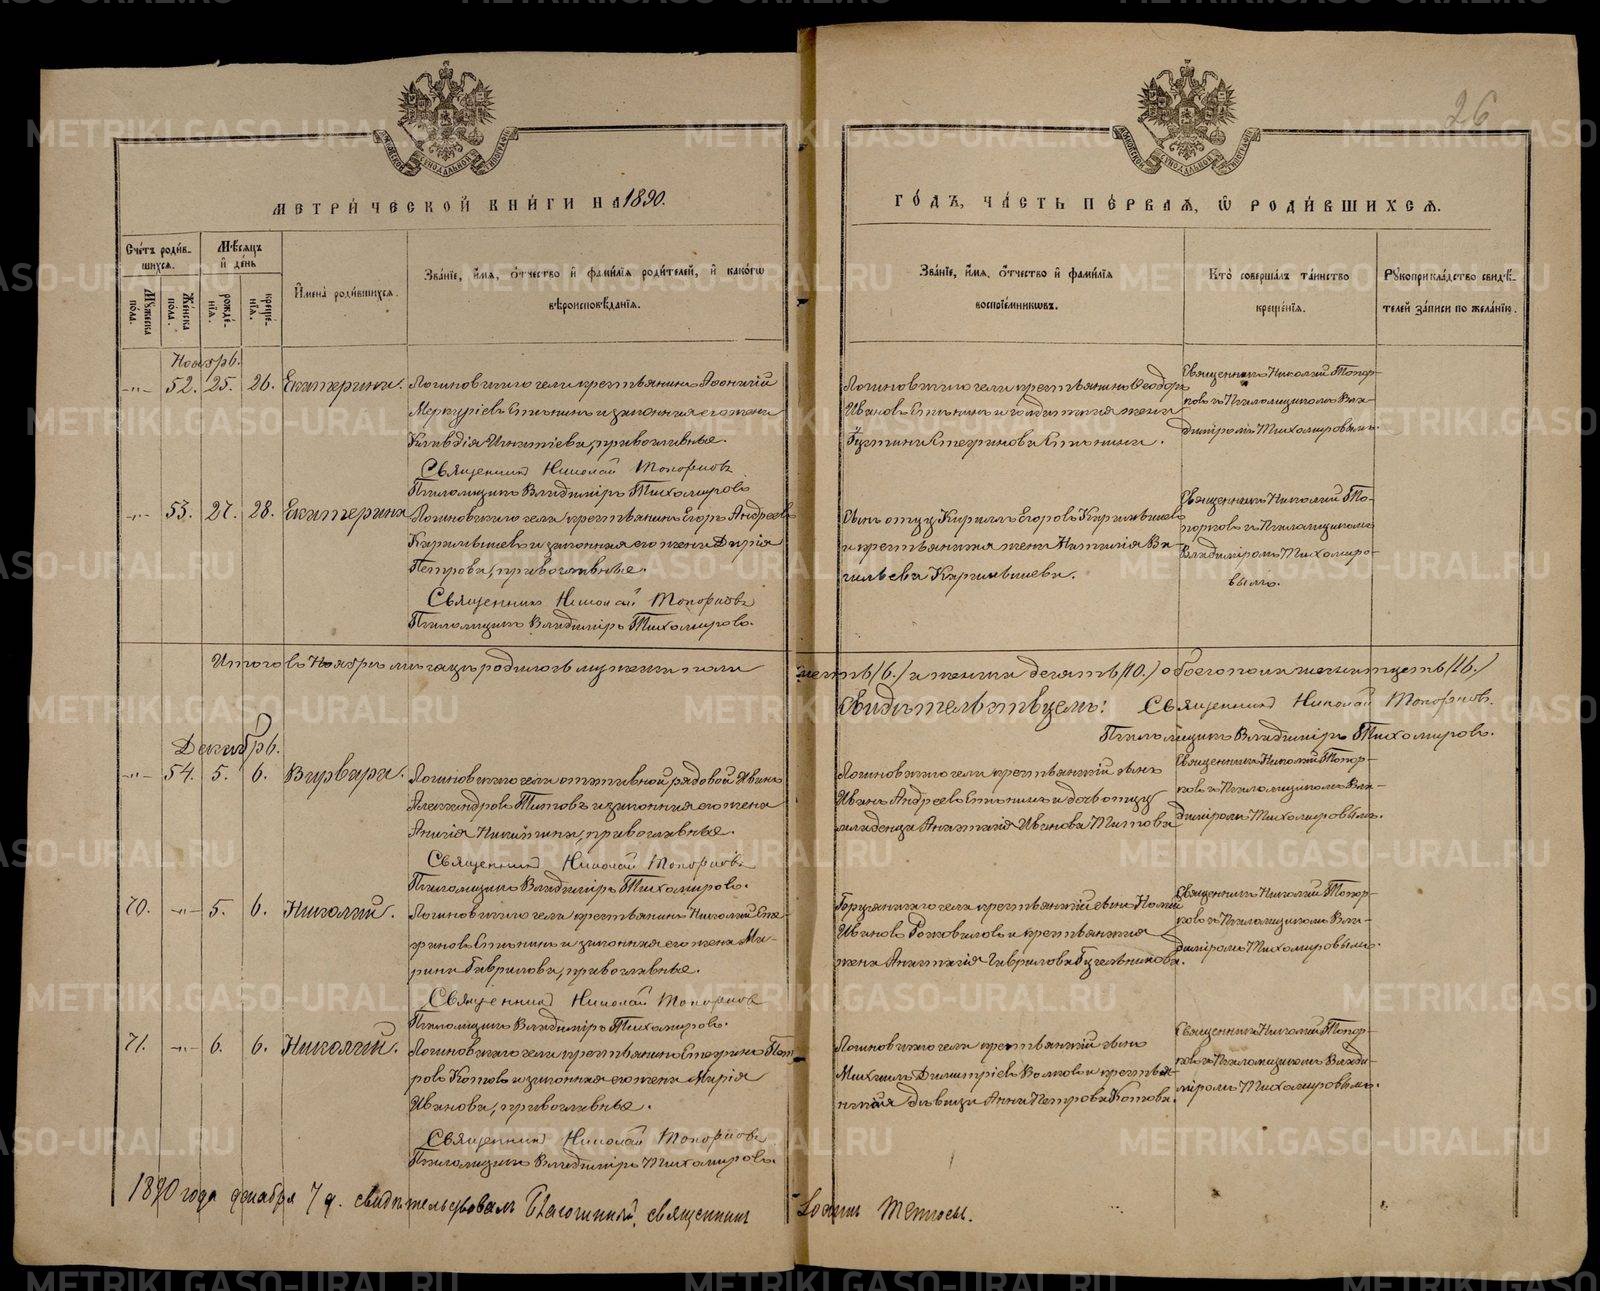 26
МЕТРИ́ЧЕСКОЙ КНИ́ГИ НА 1890.
ГО́ДЪ, ЧА́СТЬ ПЕ́РВАЯ, Ѡ РОДИ́ВШИХСЯ.
Сче́тъ роди́в-
шихся.
Мꙋ́жеска пола.
Же́нска пола.
Мѣ́сяцъ
и҆ де́нь
рожде́-
нїя.
креще́-
нїя.
И҆мена̀ роди́вшихся.
Зва́нїе, и҆́мя, ѻ҆́тчество и҆ фами́лїя роди́телей, и҆ како́гѡ
вѣроисповѣ́данїя.
Зва́нїе, и҆́мя, ѻ҆́тчество и҆ фами́лїя
воспрїе́мникѡвъ.
Кто̀ соверша́лъ та́инство
креще́нїя.
Рꙋкоприкла́дство свидѣ́-
телей за́писи по жела́нїю.
Ноябрь.
-„- 52. 25. 26. Екатерина.
Логиновскаго села крестьянинъ
Меркуріевъ и законная его жена
Клавдія Игнатіева, православные.
Священникъ Николай Топорковъ
Псаломщикъ Владиміръ Тихомировъ
Логиновскаго села крестьянинъ Ѳеодоръ
Ивановъ и жена
Священникъ Николай Топор-
ковъ съ Псаломщикомъ Вла-
диміромъ Тихомировымъ.
-„- 53. 27. 28. Екатерина
Логиновскаго села крестьянинъ Егоръ Андреевъ
и законная его жена Дарія
Петрова, православные.
Священникъ Николай Топорковъ
Псаломщикъ Владиміръ Тихомировъ.
Сынъ отца Кириллъ Егоровъ
и крестьянская жена Наталія Ва-
сильева
Священникъ Николай То-
порковъ съ Псаломщикомъ
Владиміромъ Тихомиро-
вымъ.
Итого въ Ноябрѣ мѣсяцѣ родилось мужеска пола
шесть (6.) и женска десять (10.) обоего пола шестнадцать (16.)
Свидѣтельствуемъ: Священникъ Николай Топорковъ.
Псаломщикъ Владиміръ Тихомировъ.
Декабрь.
-„- 54. 5. 6. Варвара.
Логиновскаго села отставной рядовой Иванъ
Александровъ Титовъ и законная его жена
Никитина, православные.
Священникъ Николай Топорковъ
Псаломщикъ Владиміръ Тихомировъ.
Логиновскаго села крестьянскій сынъ
Иванъ Андреевъ и дочь отца
младенца Анастасія Иванова Титова
Священникъ Николай Топор-
ковъ съ Псаломщикомъ Вла-
диміромъ Тихомировымъ.
70. -„- 5. 6. Николай.
Логиновскаго села крестьянинъ Николай
и законная его жена Ма-
рина Гаврилова, православные.
Священникъ Николай Топорковъ
Псаломщикъ Владиміръ Тихомировъ.
села крестьянскій сынъ
Ивановъ и крестьянская
жена Анастасія Гаврилова
Священникъ Николай Топор-
ковъ съ Псаломщикомъ Вла-
диміромъ Тихомировымъ.
71. -„- 6. 6. Николай.
Логиновскаго села крестьянинъ Пет-
ровъ Котовъ и законная его жена Марія
Иванова, православные.
Священникъ Николай Топорковъ.
Псаломщикъ Владиміръ Тихомировъ.
Логиновскаго села крестьянскій сынъ
Михаилъ Димитріевъ Волковъ и крестья-
нская дѣвица Анна Петрова Котова.
Священникъ Николай Топор-
ковъ съ Псаломщикомъ Влади-
міромъ Тихомировымъ.
1890 года декабря 7 д. свидѣтельствовалъ Благочинный, священникъ